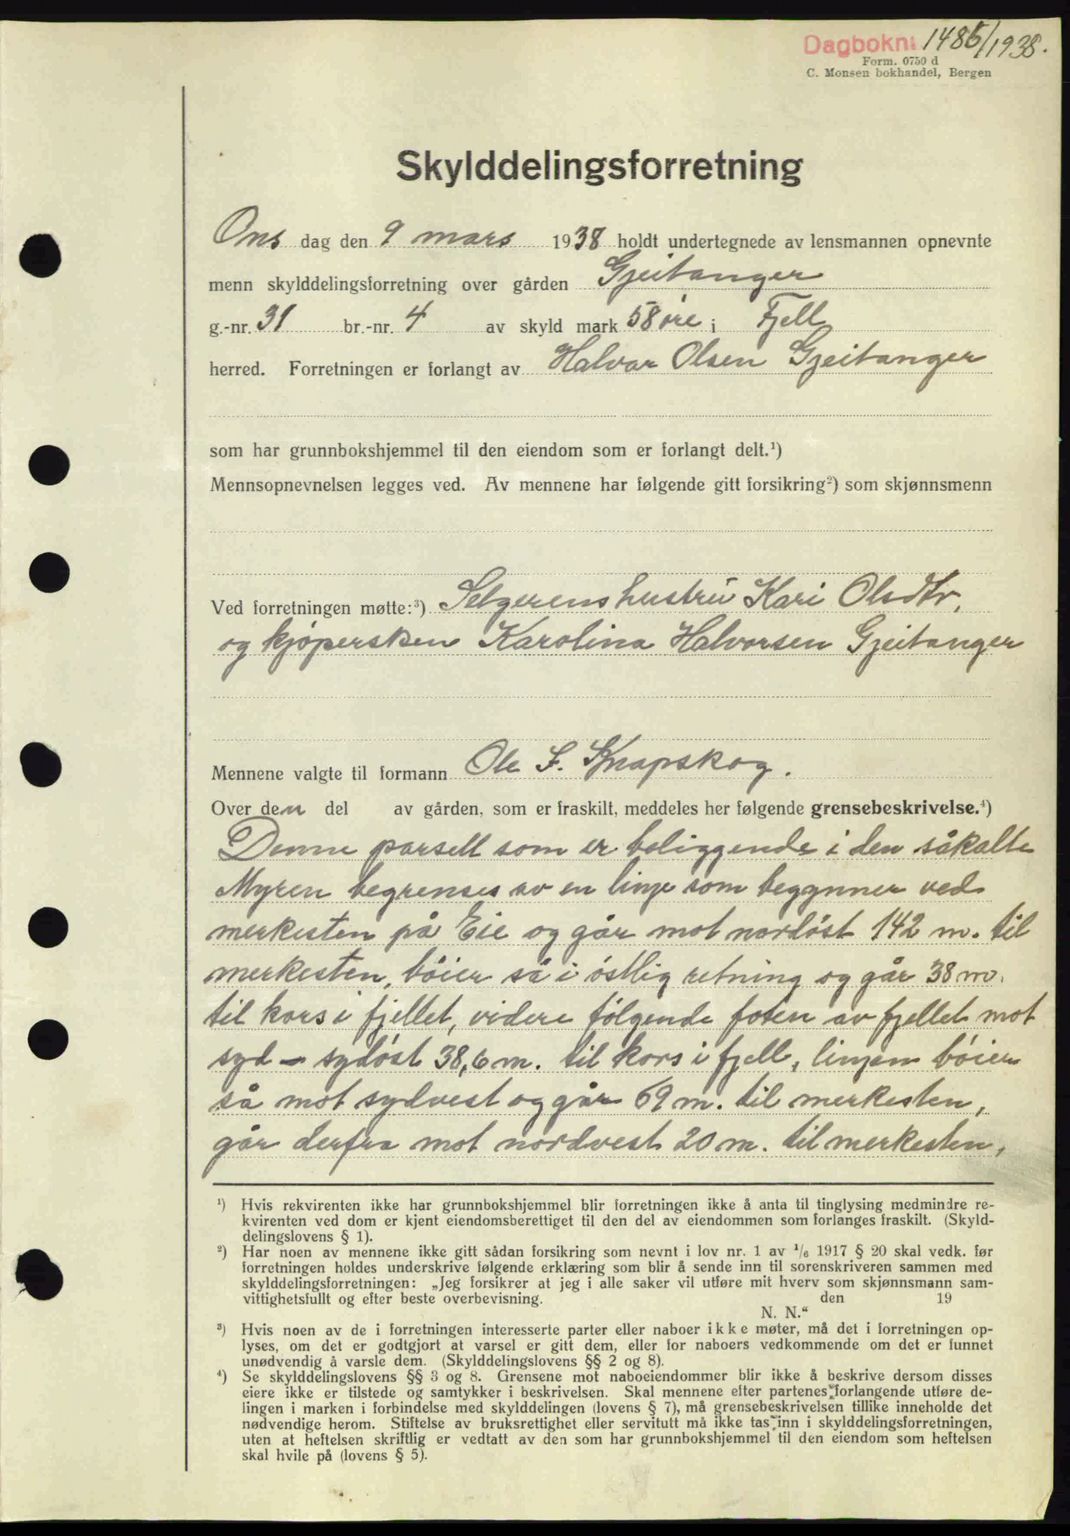 Dagboknr. 1486/1938.
Form. 0750 d
C. Monsen bokhandel, Bergen
Skylddelingsforretning
Ons dag den 9 mars 1938 holdt undertegnede av lensmannen opnevnte
menn skylddelingsforretning over gården Gjeitanger
g.-nr. 31 br.-nr. 4 av skyld mark 58 øre i Fjell
herred. Forretningen er forlangt av Halvor Olsen Gjeitanger
som har grunnbokshjemmel til den eiendom som er forlangt delt.¹)
Mennsopnevnelsen legges ved. Av mennene har følgende gitt forsikring²) som skjønnsmenn
Ved forretningen møtte:³) Selgerens hustru Kari Olsdtr.
og kjøpersken Karolina Halvorsen Gjeitanger
Mennene valgte til formann Ole F. Knapskog.
Over den del av gården, som er fraskilt, meddeles her følgende grensebeskrivelse.⁴)
Denne parsell som er beliggende i den såkalte
Myren begrenses av en linje som begynner ved
merkesten på Eie og går mot nordøst 142 m. til
merkesten, bøier så i østlig retning og går 38 m.
til kors i fjellet, videre følgende foten av fjellet mot
syd - sydøst 38,6 m. til kors i fjell, linjen bøier
så mot sydvest og går 69 m. til merkesten,
går derfra mot nordvest 20 m. til merkesten,
¹) Hvis rekvirenten ikke har grunnbokshjemmel blir forretningen ikke å anta til tinglysing medmindre re-
kvirenten ved dom er kjent eiendomsberettiget til den del av eiendommen som forlanges fraskilt. (Skyld-
delingslovens § 1).
²) Har noen av mennene ikke gitt sådan forsikring som nevnt i lov nr. 1 av 1/6 1917 § 20 skal vedk. før
forretningen holdes underskrive følgende erklæring som blir å sende inn til sorenskriveren sammen med
skylddelingsforretningen: „Jeg forsikrer at jeg i alle saker vil utføre mitt hverv som skjønnsmann sam-
vittighetsfullt og efter beste overbevisning. den 19
N. N.“
³) Hvis noen av de i forretningen interesserte parter eller naboer ikke møter, må det i forretningen op-
lyses, om det er godtgjort at varsel er gitt dem, eller for naboers vedkommende om det er funnet
unødvendig å varsle dem. (Skylddelingslovens §§ 2 og 8).
⁴) Se skylddelingslovens §§ 3 og 8. Grensene mot naboeiendommer blir ikke å beskrive dersom disses
eiere ikke er tilstede og samtykker i beskrivelsen. Skal mennene efter partenes forlangende utføre de-
lingen i marken i forbindelse med skylddelingen (lovens § 7), må grensebeskrivelsen tillike inneholde det
nødvendige herom. Stiftelse av bruksrettighet eller servitutt må ikke tas inn i skylddelingsforretningen,
uten at heftelsen skriftlig er vedtatt av den som har grunnbokshjemmel til den eiendom som heftelsen
skal hvile på (lovens § 5).